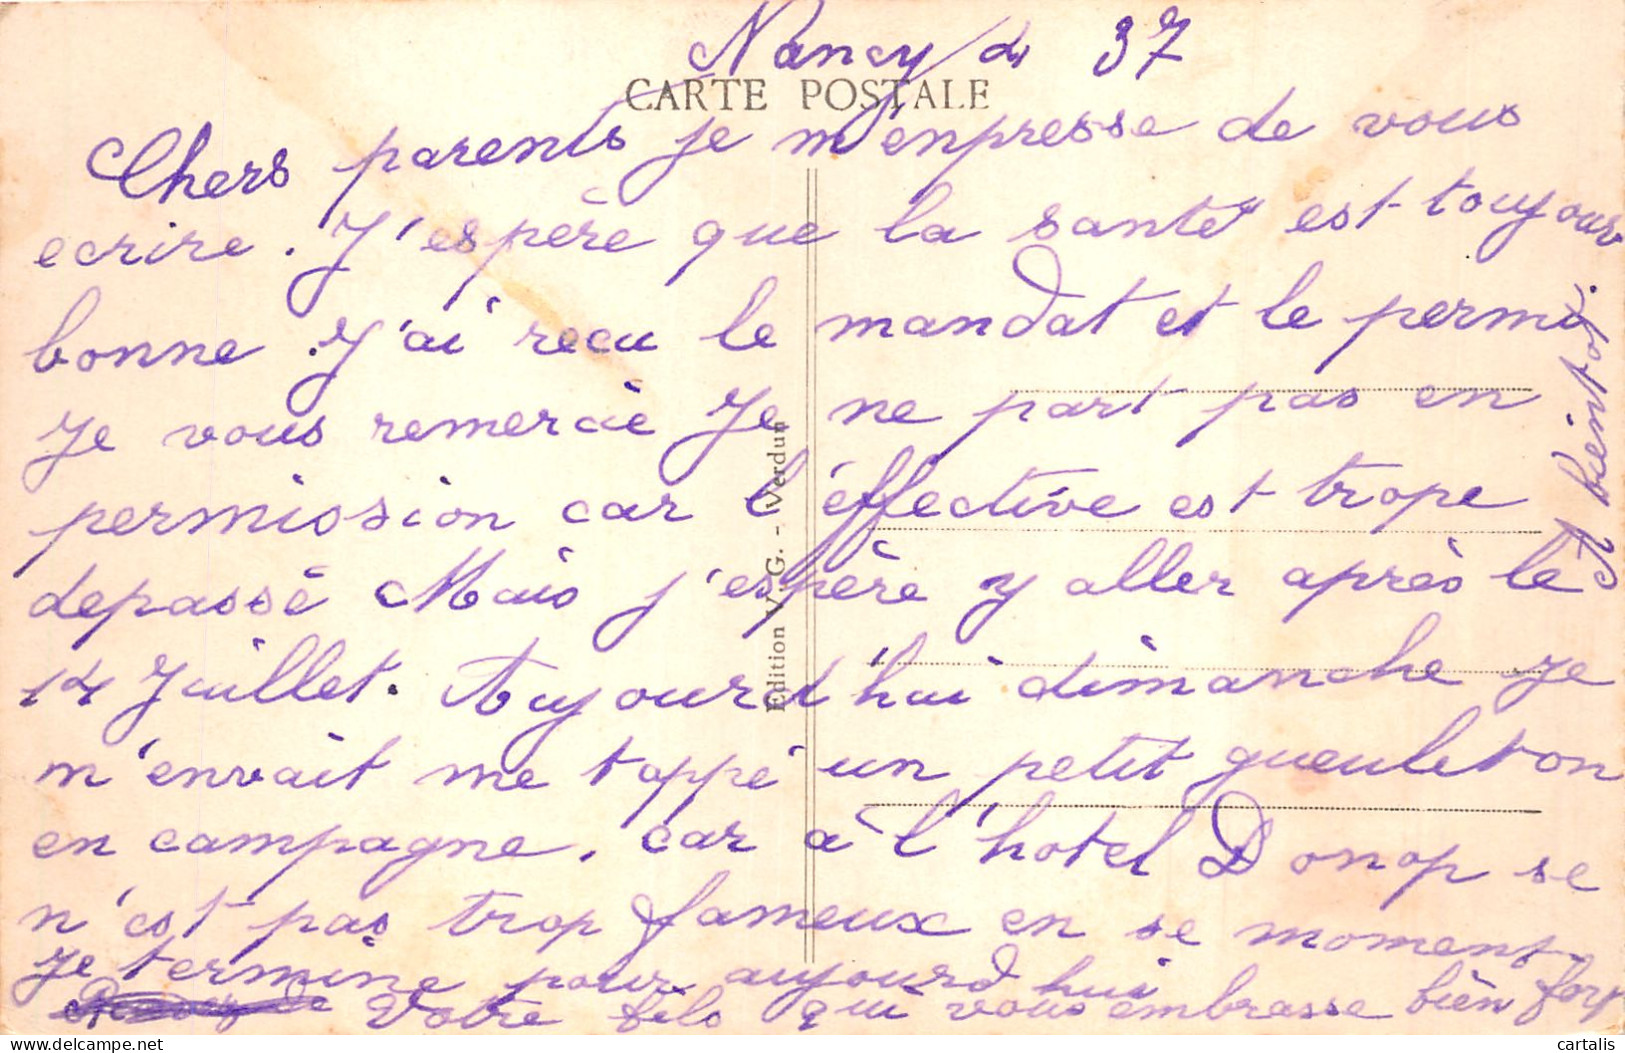 Nancy le 37
CARTE POSTALE
Chers parents je m'enpresse de vous
ecrire. J'espère que la santé est toujours
bonne. J'ai recu le mandat et le permi.
Je vous remercie Je ne part pas en
permission car l'éffective est trope
depassé Mais j'espère y aller après le
14 Juillet. Aujourd'hui dimanche je
m'envait me tappé un petit gueuleton
en campagne, car à l'hotel Donop se
n'est pas trop fameux en se moment.
Je termine pour aujourd'hui
Votre fils qui vous embrasse bien fort
A bientot
Edition V. G. - Verdun
cartalis